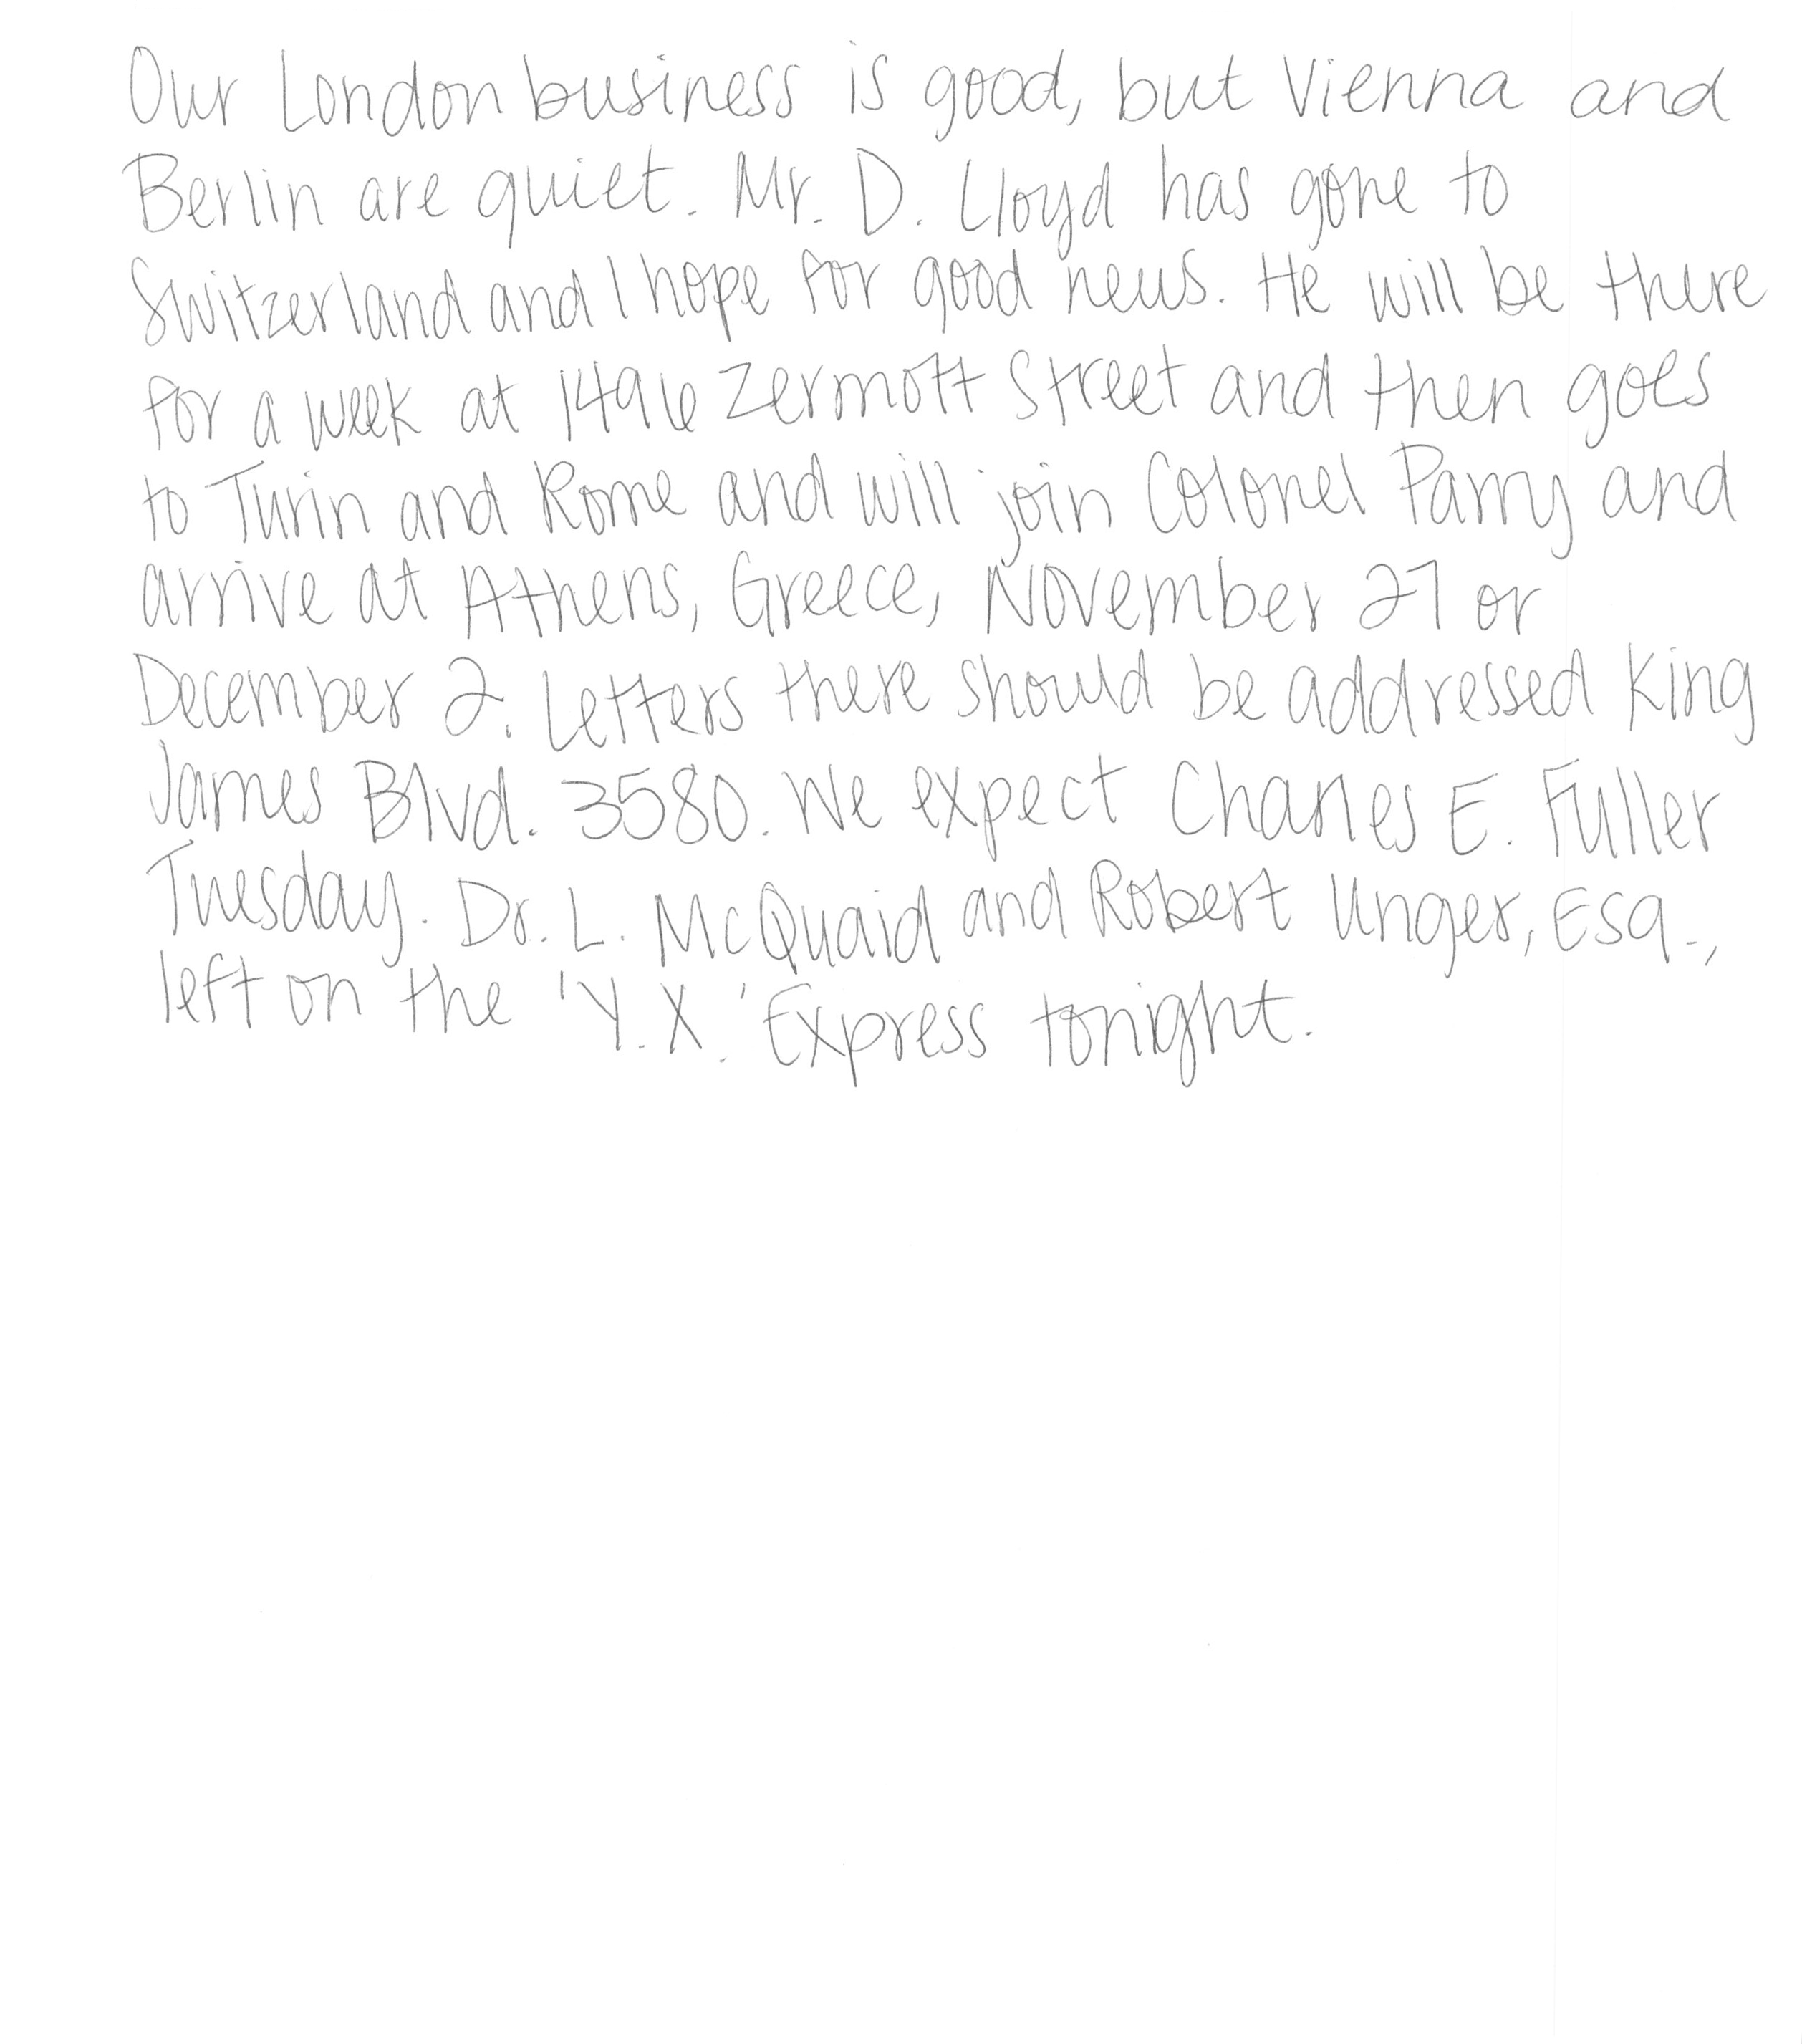 Our London business is good, but Vienna and
Berlin are quiet. Mr. D. Lloyd has gone to
Switzerland and I hope for good news. He will be there
for a week at 1496 Zermott Street and then goes
to Turin and Rome and will join Colonel Parry and
arrive at Athens, Greece, November 27 or
December 2. Letters there should be addressed King
James Blvd. 3580. We expect Charles E. Fuller
Tuesday. Dr. L. McQuaid and Robert Unger, Esq.,
left on the 'Y. X.' Express tonight.